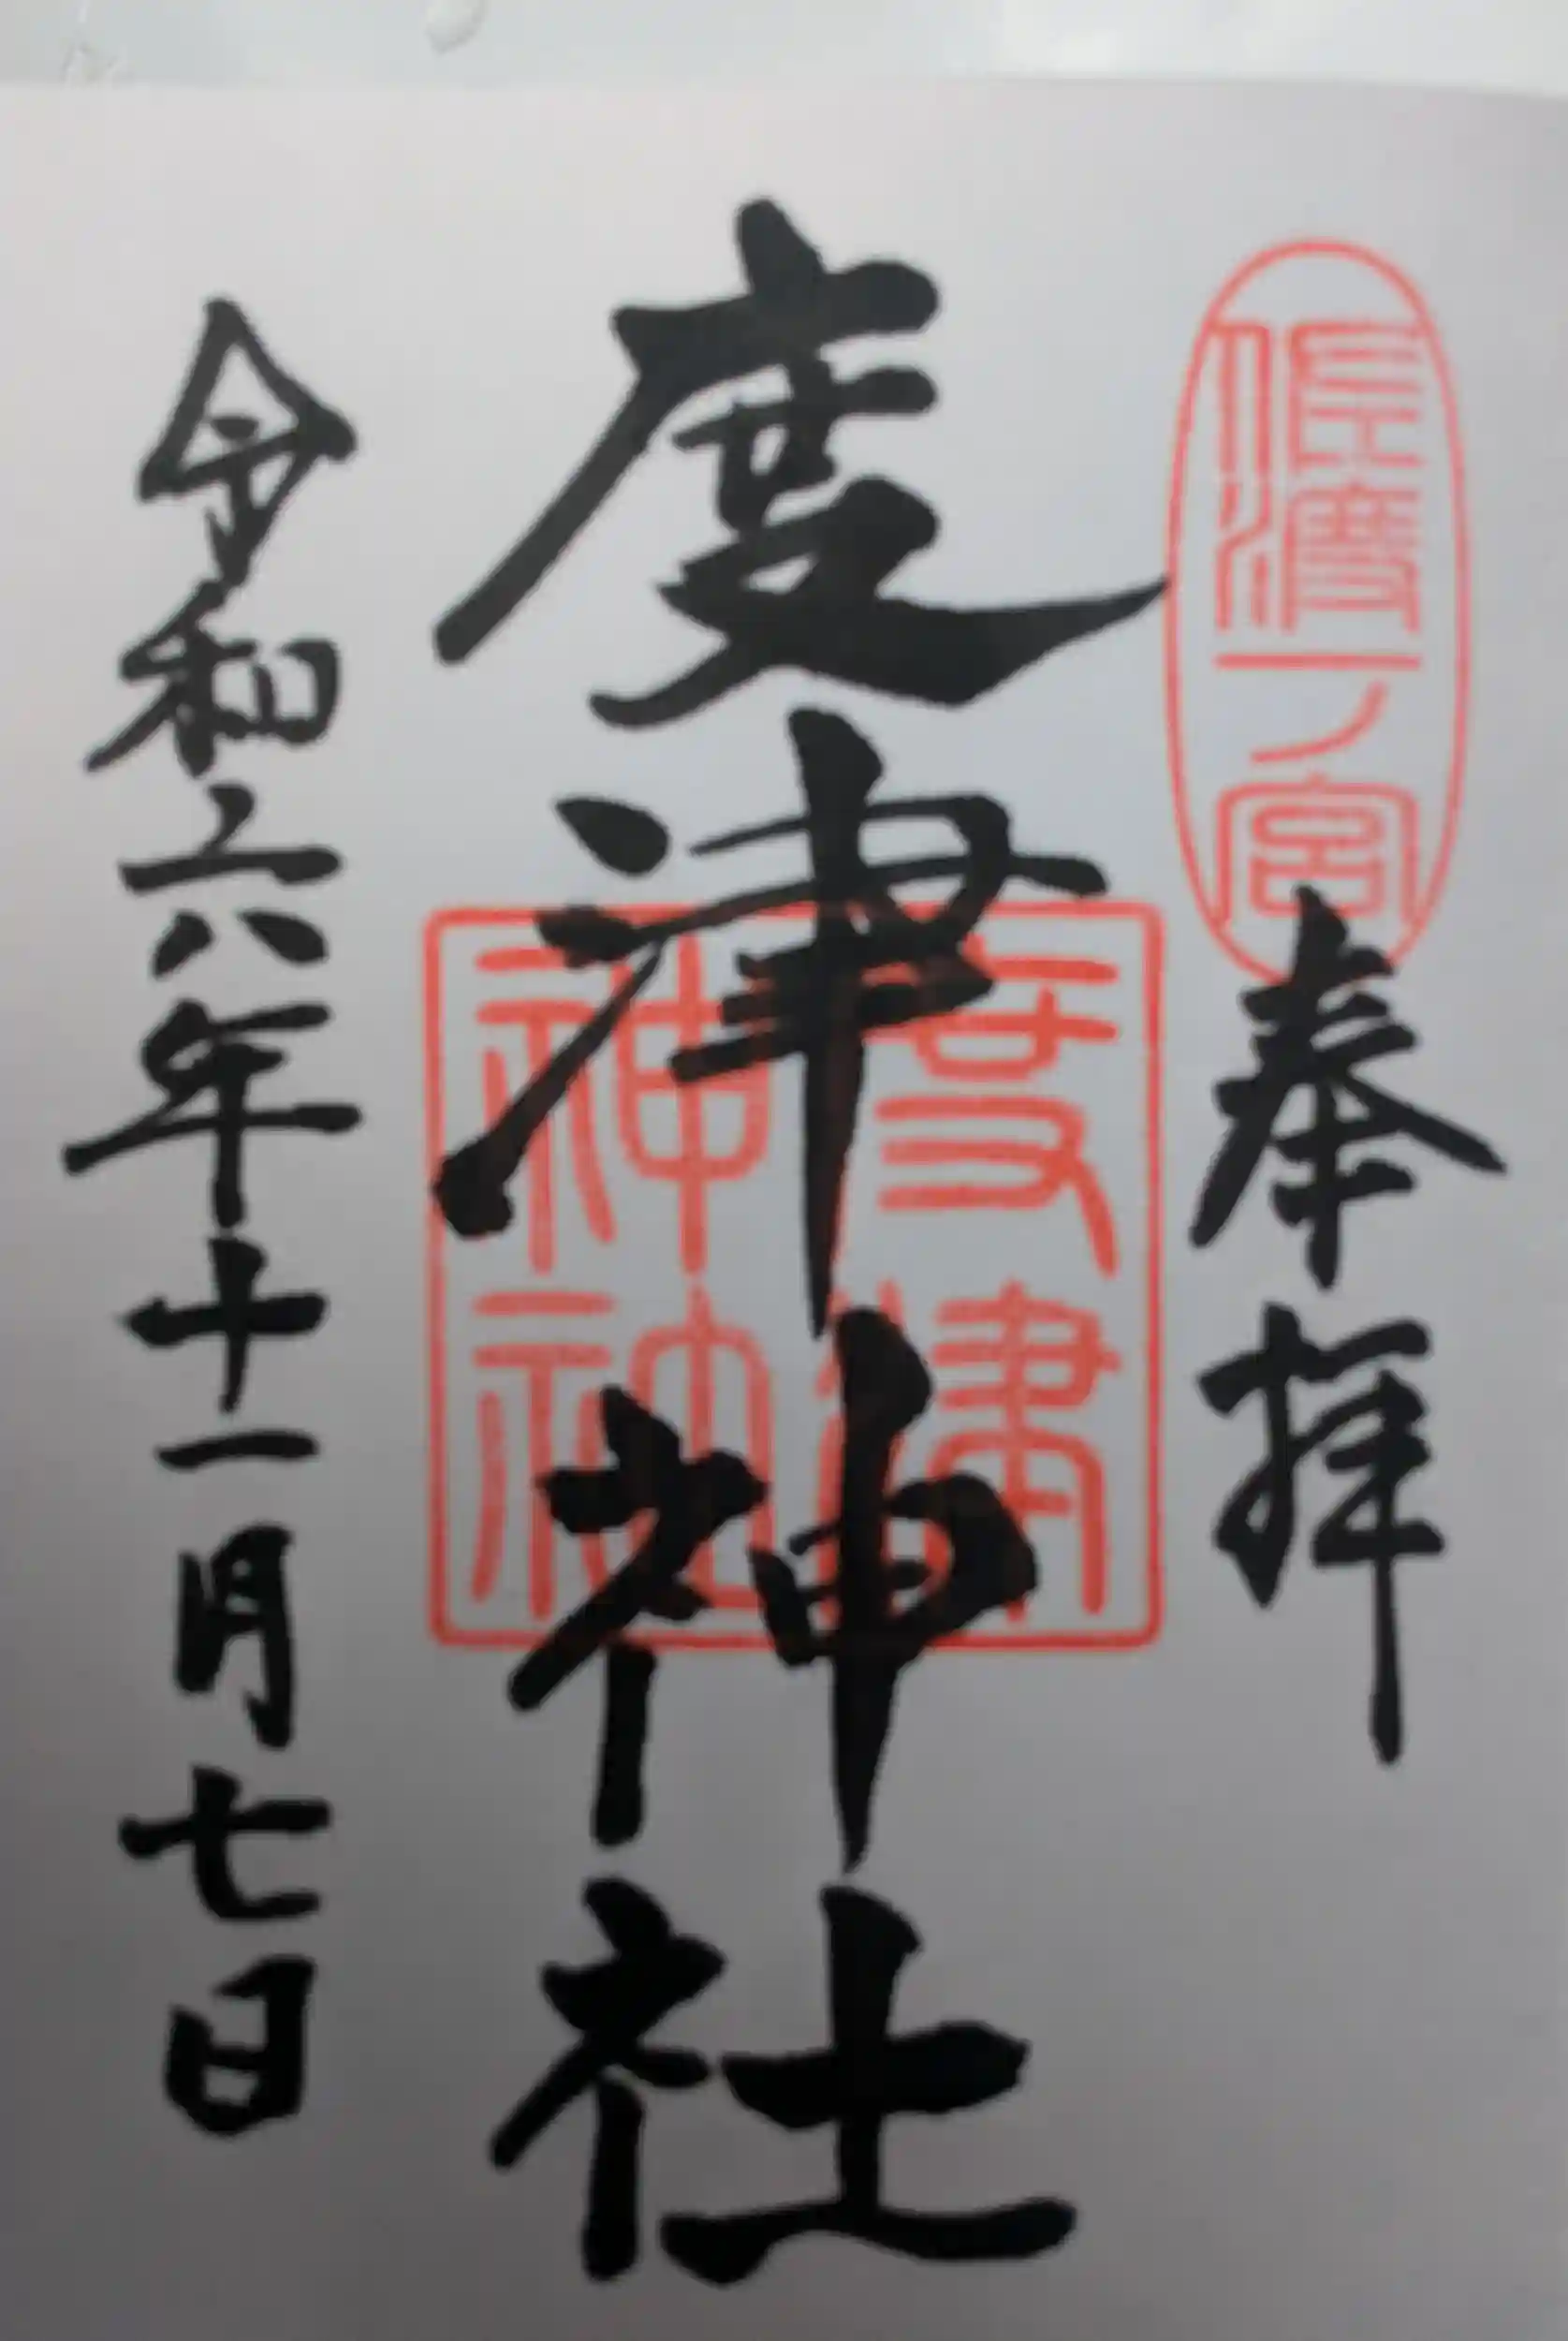 佐渡一ノ宮
奉拝
度津神社
度津
神社
令和六年十一月七日